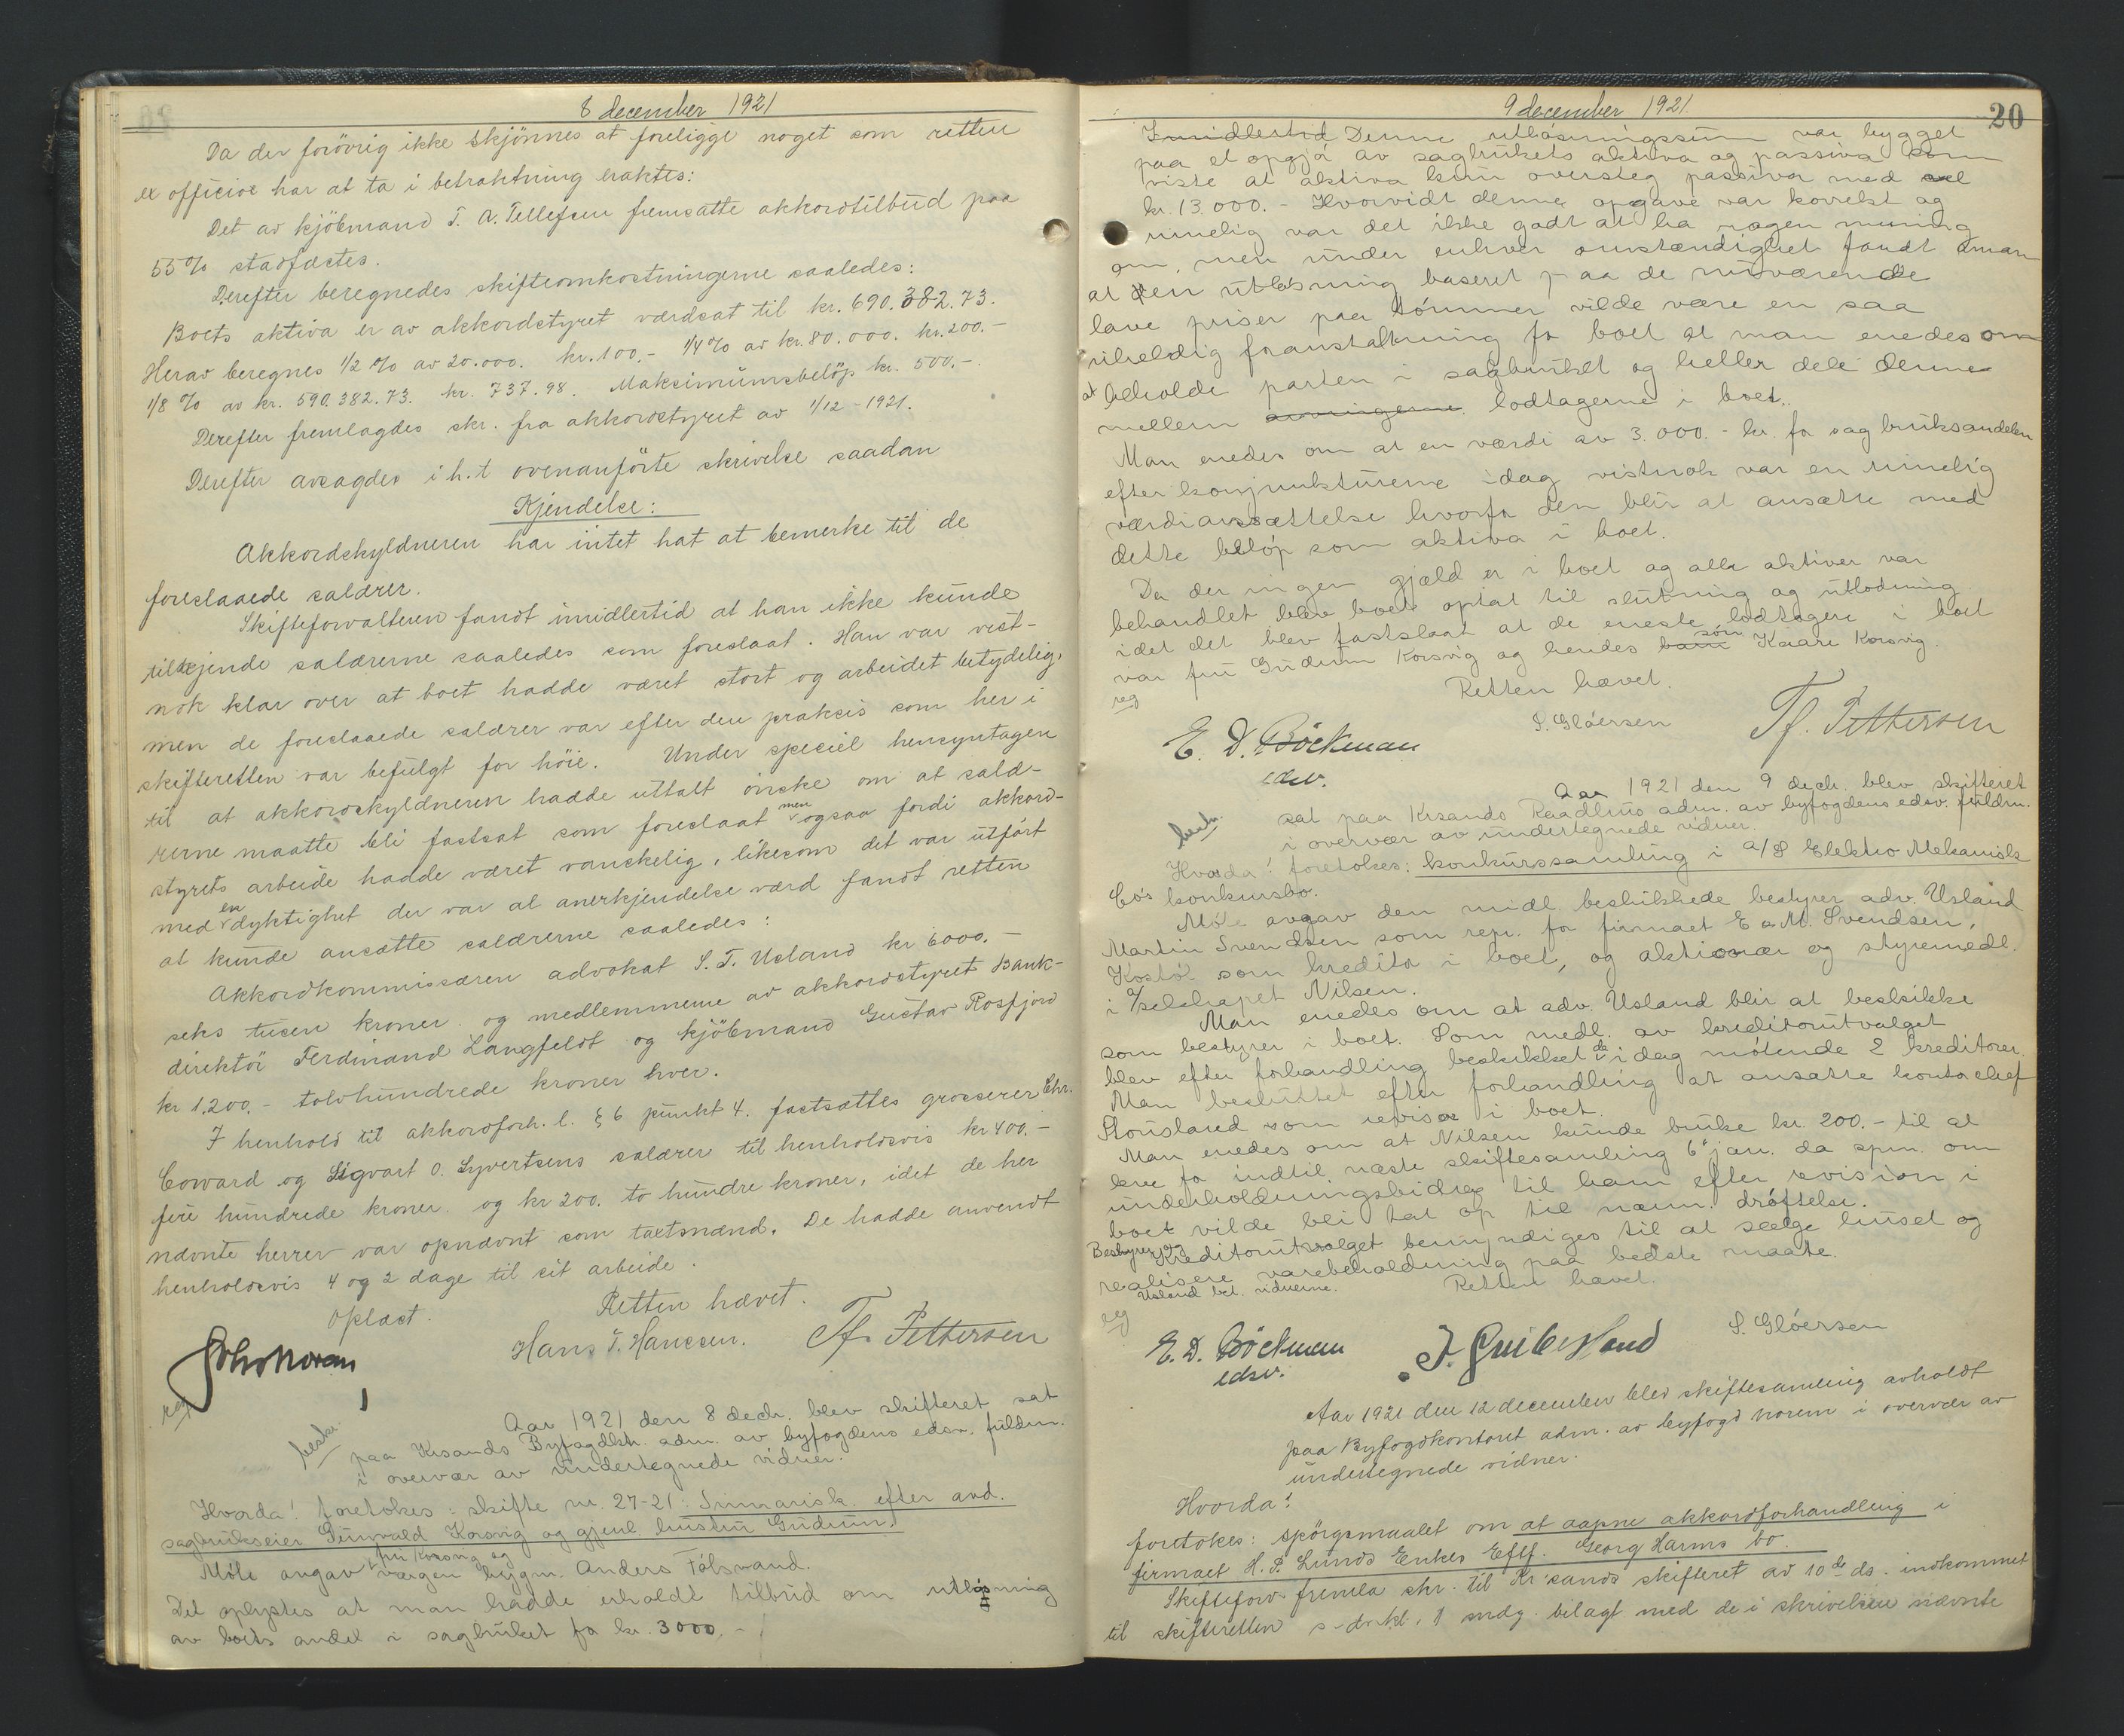 8 december 1921
Da der forövrig ikke skjönnes at foreligge noget som retten
ex officioe har at ta i betraktning eraktes:
Det av kjöbmand T. A. Tellefsen fremsatte akkordtilbud paa
55% stadfæstes.
Derefter beregnedes skifteomkostningerne saaledes:
Boets aktiva er av akkordstyret værdsat til kr. 690.382.73.
Herav beregnes 1/2 % av 20.000. kr. 100.- 1/4% av kr. 80.000. kr. 200.-
1/8 % av kr. 590.382.73. kr. 737.98. Maksimumsbelöp kr. 500.-.
Derefter fremlagdes skr. fra akkordstyret av 1/12-1921.
Derefter avsagdes i h.t ovenanförte skrivelse saadan
Kjendelse:
Akkordskyldneren har intet hat at bemerke til de
foreslaaede salærer.
Skifteforvalteren fandt imidlertid at han ikke kunde
tilkjende salærerne saaledes som foreslaat. Han var vist-
nok klar over at boet hadde været stort og arbeidet betydelig,
men de foreslaaede salærer var efter den praksis som her i
skifteretten var befulgt for höie. Under speciel hensyntagen
til at akkordskyldneren hadde uttalt önske om at salæ-
rerne maatte bli fastsat som foreslaat men ogsaa fordi akkord-
styrets arbeide hadde været vanskelig, likesom det var utfört
med en dyktighet der var al anerkjendelse værd fandt retten
at kunde ansætte salærerne saaledes:
Akkordkommissæren advokat S. T. Usland kr 6000.-
seks tusen kroner og medlemmerne av akkordstyret Bank-
direktör Ferdinand Langfeldt og kjöbmand Gustav Rosfjord
kr 1.200.- tolvhundrede kroner hver.
I henhold til akkordforh. l. § 6 punkt 4. fastsættes grosserer Chr.
Coward og Sigvart O. Syvertsens salærer til henholdsvis kr 400.-
fire hundrede kroner og kr 200. to hundre kroner, idet de her
nævnte herrer var opnævnt som takstmænd. De hadde anvendt
henholdsvis 4 og 2 dage til sit arbeide.
Oplæst.
Retten hævet.
Hans T. Hanssen. Tf. Pettersen
reg
beskr.
Aar 1921 den 8 decbr. blev skifteret sat
paa Krsands Byfogdkt. adm. av byfogdens edsv. fuldm.
i overvær av undertegnede vidner.
Hvorda! foretokes: skifte nr. 27-21: Summarisk efter avd.
sagbrukseier Gunvald Korsvig og gjenl. hustru Gudrun.
Möte avgav fru Korsvig og værgen bygm. Anders Fölsvand.
Det oplystes at man hadde erholdt tilbud om utlösning
av boets andel i sagbruket for kr. 3000.-
9 december 1921
20
Imidlertid Denne utlösningssum var bygget
paa et opgjö av sagbrukets aktiva og passiva som
viste at aktiva kun oversteg passiva med
kr. 13.000.- Hvorvidt denne opgave var korrekt og
rimelig var det ikke godt at ha nogen mening
om, men under enhver omstændighet fandt man
at en utlösning baseret paa de nuværende
lave priser paa tömmer vilde være en saa
uheldig foranstaltning for boet at man enedes om
at beholde parten i sagbruket og heller dele denne
mellem arvingerne lodtagerne i boet.
Man enedes om at en værdi av 3.000.- kr. for sagbruksandelen
efter konjunkturerne idag vistnok var en rimelig
værdiansættelse hvorfor den blir at ansætte med
dette belöp som aktiva i boet.
Da der ingen gjæld er i boet og alle aktiver var
behandlet blev boet optat til slutning og utlodning
idet det blev fastslaat at de eneste lodtagere i boet
var fru Gudrun Korsvig og hendes barn sön Kaare Korsvig.
reg
Retten hævet.
E. D. Böckman
edsv.
S. Glöersen Tf. Pettersen
beskr.
Aar 1921 den 9 decb. blev skifteret
sat paa Krsands Raadhus adm. av byfogdens edsv. fuldm.
i overvær av undertegnede vidner.
Hvorda! foretokes: konkurssamling i a/S Elektro Mekanisk
Co's konkursbo.
Möte avgav den midl. beskikkede bestyrer adv. Usland
Martin Svendsen som repr. for firmaet E & M. Svendsen,
Kostöl som kreditor i boet, og aktionær og styremedl.
i a/selskapet Nilsen.
Man enedes om at adv. Usland blir at beskikke
som bestyrer i boet. Som medl. av kreditorutvalget
blev efter forhandling beskikket de i dag mötende 2 kreditorer.
Man besluttet efter forhandling at ansætte kontorchef
Stousland som revisor i boet.
Man enedes om at Nilsen kunde bruke kr. 200.- til at
leve for indtil næste skiftesamling 6' jan. da spm. om
underholdningsbidrag til ham efter revision i
boet vilde bli tat op til nærm. dröftelse.
Bestyrer og Kreditorutvalget bemyndiges til at sælge huset og
realisere varebeholdning paa bedste maate.
Usland bet. vidnerne. Retten hævet.
reg
E. D. Böckman
edsv.
S. Glöersen
Aar 1921 den 12 december blev skiftesamling avholdt
paa Byfogdkontoret adm. av byfogd Norem i overvær av
undertegnede vidner.
Hvorda!
foretokes: spörgsmaalet om at aapne akkordforhandling i
firmaet H. P. Lunds Enkes Eftf. Georg Harms bo.
Skifteforv. fremla skr. til Kr'sands skifteret av 10de ds. indkommet
til skifteretten s. d. kl. 1 mdg. bilagt med de i skrivelsen nævnte